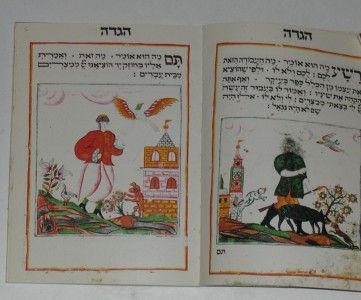 הגדה
מה הוא אומר . מה העבודה הזאת
לכם : לכם ולא לו . ולפי שהוציא
את עצמו מן הכלל כפר בעיקר . ואף
את שיניו : ואמור לו בעבור זה עשה
לי בצאתי ממצרים : לי ולא לו . אילו היה
שם לא היה נגאל :
תם
הגדה
תם מה הוא אומר . מה זאת . ואמרת
אליו בחוזק יד הוציאנו יי ממצרים
מבית עבדים :